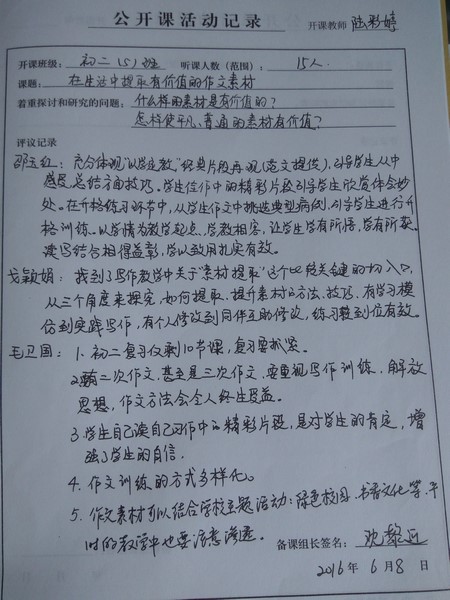 公开课活动记录 开课教师 陆彩婷
开课班级: 初二(5)班 听课人数(范围): 15人.
课题: 在生活中提取有价值的作文素材
着重探讨和研究的问题: 什么样的素材是有价值的?
怎样使平凡、普通的素材有价值?
评议记录
邵玉红: 充分体现"以学定教",经典片段再现(范文提供),引导学生从中
感受总结方面技巧。学生佳作中的精彩片段引导学生欣赏体会妙
处。在升格练习环节中,从学生作文中挑选典型病例,引导学生进行升
格训练。以学情为教学起点,学教相容,让学生学有所悟,学有所获。
读写结合相得益彰,学以致用扎实有效。
戈颖娟: 找到了写作教学中关于"素材提取"这个比较关键的切入口,
从三个角度来探究,如何提取、提升素材的方法、技巧,有学习模
仿到实践写作,有个人修改到同伴互助修改,练习整到位有效。
毛卫国: 1. 初二复习仅剩10节课,复习要抓紧。
2. 二次作文,甚至是三次作文,要重视写作训练,解放
思想,作文方法会令人终生受益。
3. 学生自己读自己习作中的精彩片段,是对学生的肯定,增
强了学生的自信.
4. 作文训练的方式多样化。
5. 作文素材可以结合学校主题活动: 绿色校园、书香文化等,平
时的教学中也要注意渗透。
备课组长签名:
2016年6月8日